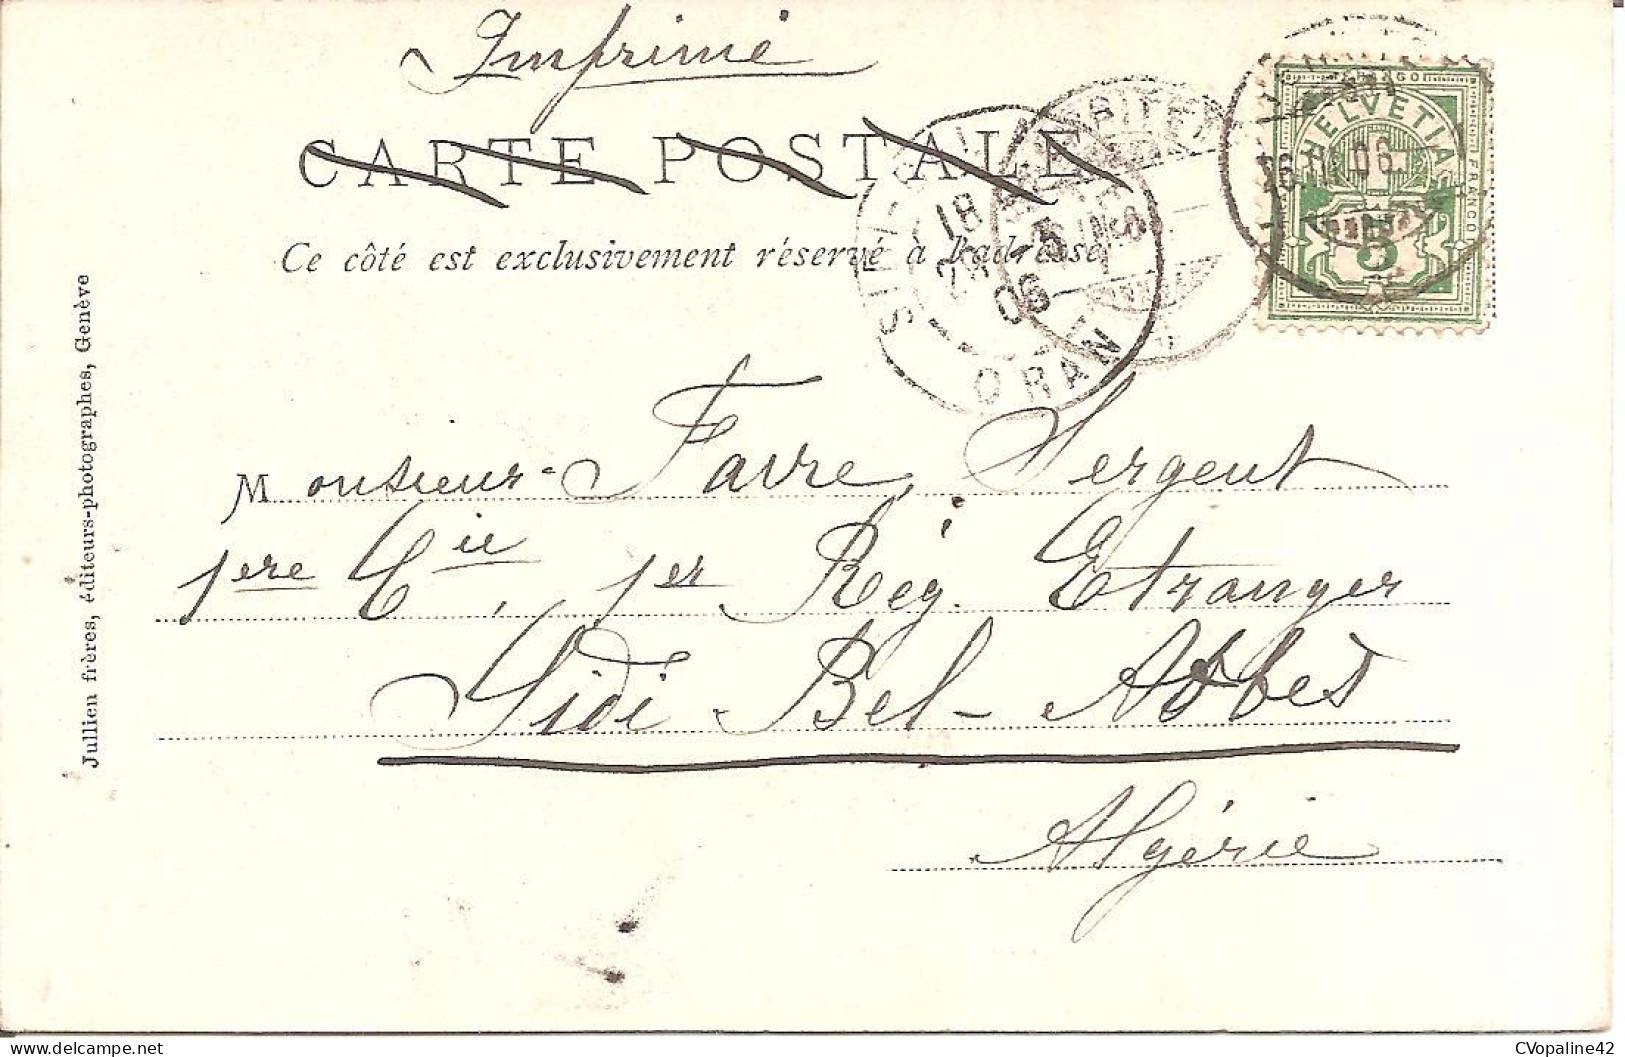 Imprimé
CARTE POSTALE
Ce côté est exclusivement réservé à l'adresse
HELVETIA
FRANCO
5
06
18
06
ORAN
Monsieur Favre, Sergent
1ere Cie, 1er Rég. Etranger
Sidi-Bel-Abbès
Algérie
Jullien frères, éditeurs-photographes, Genève
CVopaline42